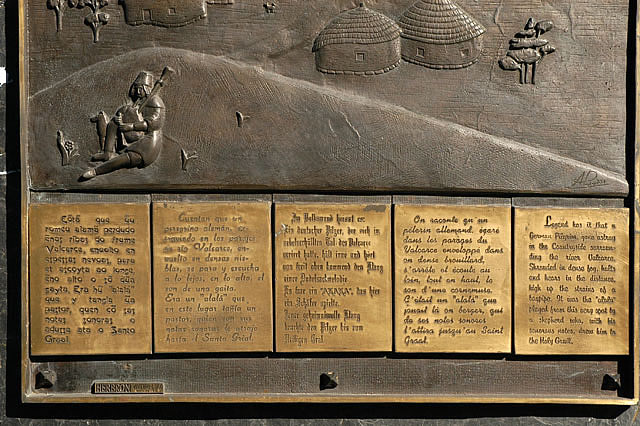 Cóntó que un
romeu alemá perdudo
Valcarce, envolto en
a o Santo
Graal.
Cuentan que un
peregrino alemán, ex-
traviado en los parajes
de río Valcarce, en-
vuelto en densas nie-
blas, se para y escucha
a lo lejos, en lo alto, el
son de una gaita.
Era un "alalá" que
en este lugar tañía un
pastor, quien con sus
notas sonoras lo atrajo
hasta el Santo Grial.
Im Volksmund heisst es:
Ein deutscher Pilger, der sich in
nebelverhülltem Tal des Valcarce
verirrt hatte, hält inne und hört
von weit oben kommend den Klang
einer Dudelsackmelodie.
Es war ein "ALALA", das hier
ein Schäfer spielte.
Dieser geheimnisvolle Klang
brachte den Pilger bis zum
Heiligen Gral.
On raconte qu'un
pèlerin allemand, égaré
dans les parages du
Valcarce enveloppé dans
un dense brouillard,
s'arrête et écoute au
loin, tout en haut, le
son d'une cornemuse.
C'était un "alalá" que
jouait là un berger, qui
de ses notes sonores
l'attira jusqu'au Saint
Graal.
Legend has it that a
German Pilgrim, gone astray
on the Countryside surroun-
ding the river Valcarce,
Shrouded in dense fog, halts
and hears in the distance,
high up the strains of a
bagpipe. It was the "alalá"
played from this very spot by
a shepherd who, with his
sonorous notes, drew him to
the Holy Graal.
HERBÓN